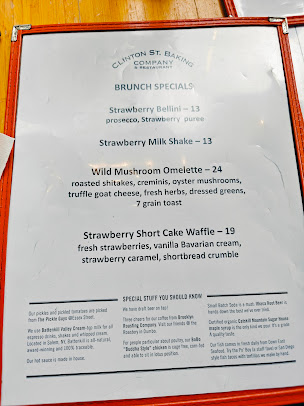 CLINTON ST. BAKING
COMPANY
& RESTAURANT
BRUNCH SPECIALS
Strawberry Bellini – 13
prosecco, Strawberry puree
Strawberry Milk Shake – 13
Wild Mushroom Omelette – 24
roasted shitakes, creminis, oyster mushrooms,
truffle goat cheese, fresh herbs, dressed greens,
7 grain toast
Strawberry Short Cake Waffle – 19
fresh strawberries, vanilla Bavarian cream,
strawberry caramel, shortbread crumble
SPECIAL STUFF YOU SHOULD KNOW
Our pickles and pickled tomatoes are picked
from The Pickle Guys @Essex Street.
We use Battenkill Valley Cream-top milk for all
espresso drinks, shakes and whipped cream.
Located in Salem, NY, Battenkill is all-natural,
award-winning and 100% traceable.
Our hot sauce is made in house.
We have draft beer on tap!
Three cheers for our coffee from Brooklyn
Roasting Company. Visit our friends @ the
Roastery in Dumbo.
For people particular about poultry, our BoBo
"Buddha Style" chicken is cage free, corn fed
and able to sit in lotus position.
Small Batch Soda is a must: Maine Root Beer is
hands down the best we've ever tried.
Certified organic Catskill Mountain Sugar House
maple syrup is the only kind we pour. It's a grade
A quality taste.
Our fish comes in fresh daily from Down East
Seafood. Try the Po' Boy to start! Two or San Diego
style fish tacos with tortillas we make by hand.